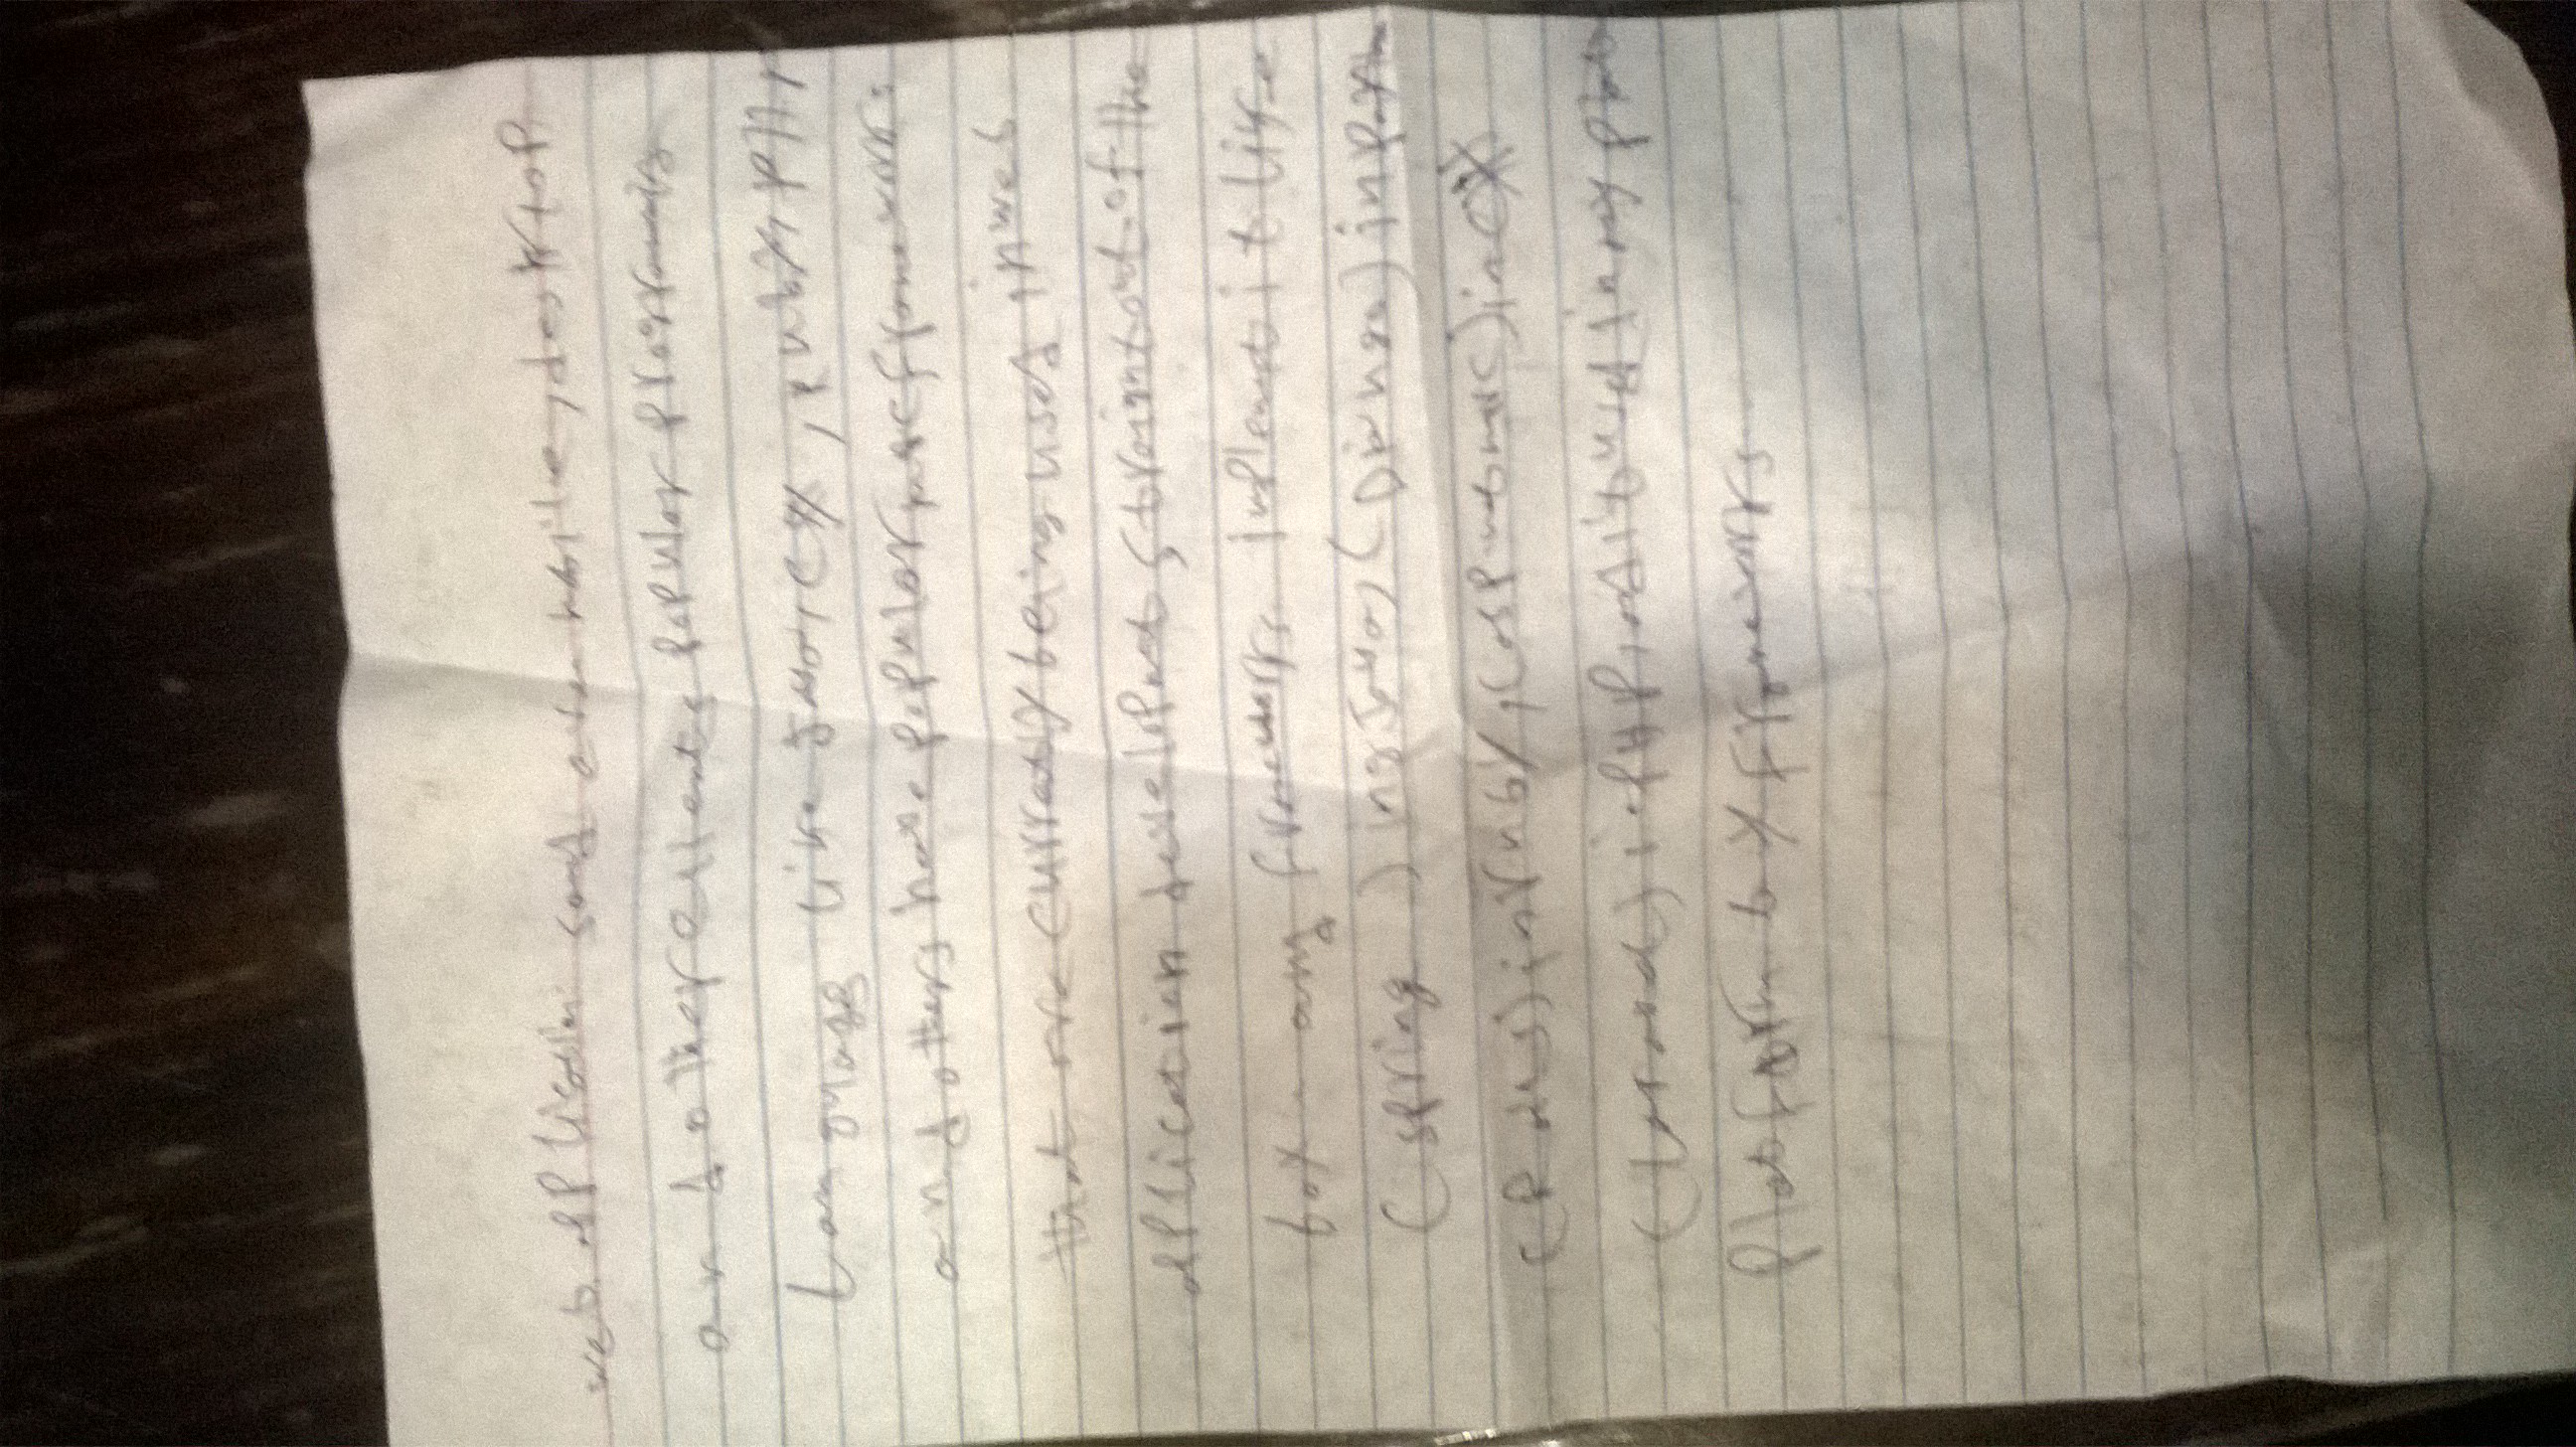 web application sand even mobile, desktop
and other clients popular programing
Language like Java, C#, ruby, PHP,
and others have popular mvc frameworks
that are currently being used in web
application development straight out of the
box. any frameworks implement it like
(spring) in Java, (Django) in python
(Rails) in ruby, (asp net mvc) in C#
(laravel) in PHP, and it used in my
Platform by frameworks